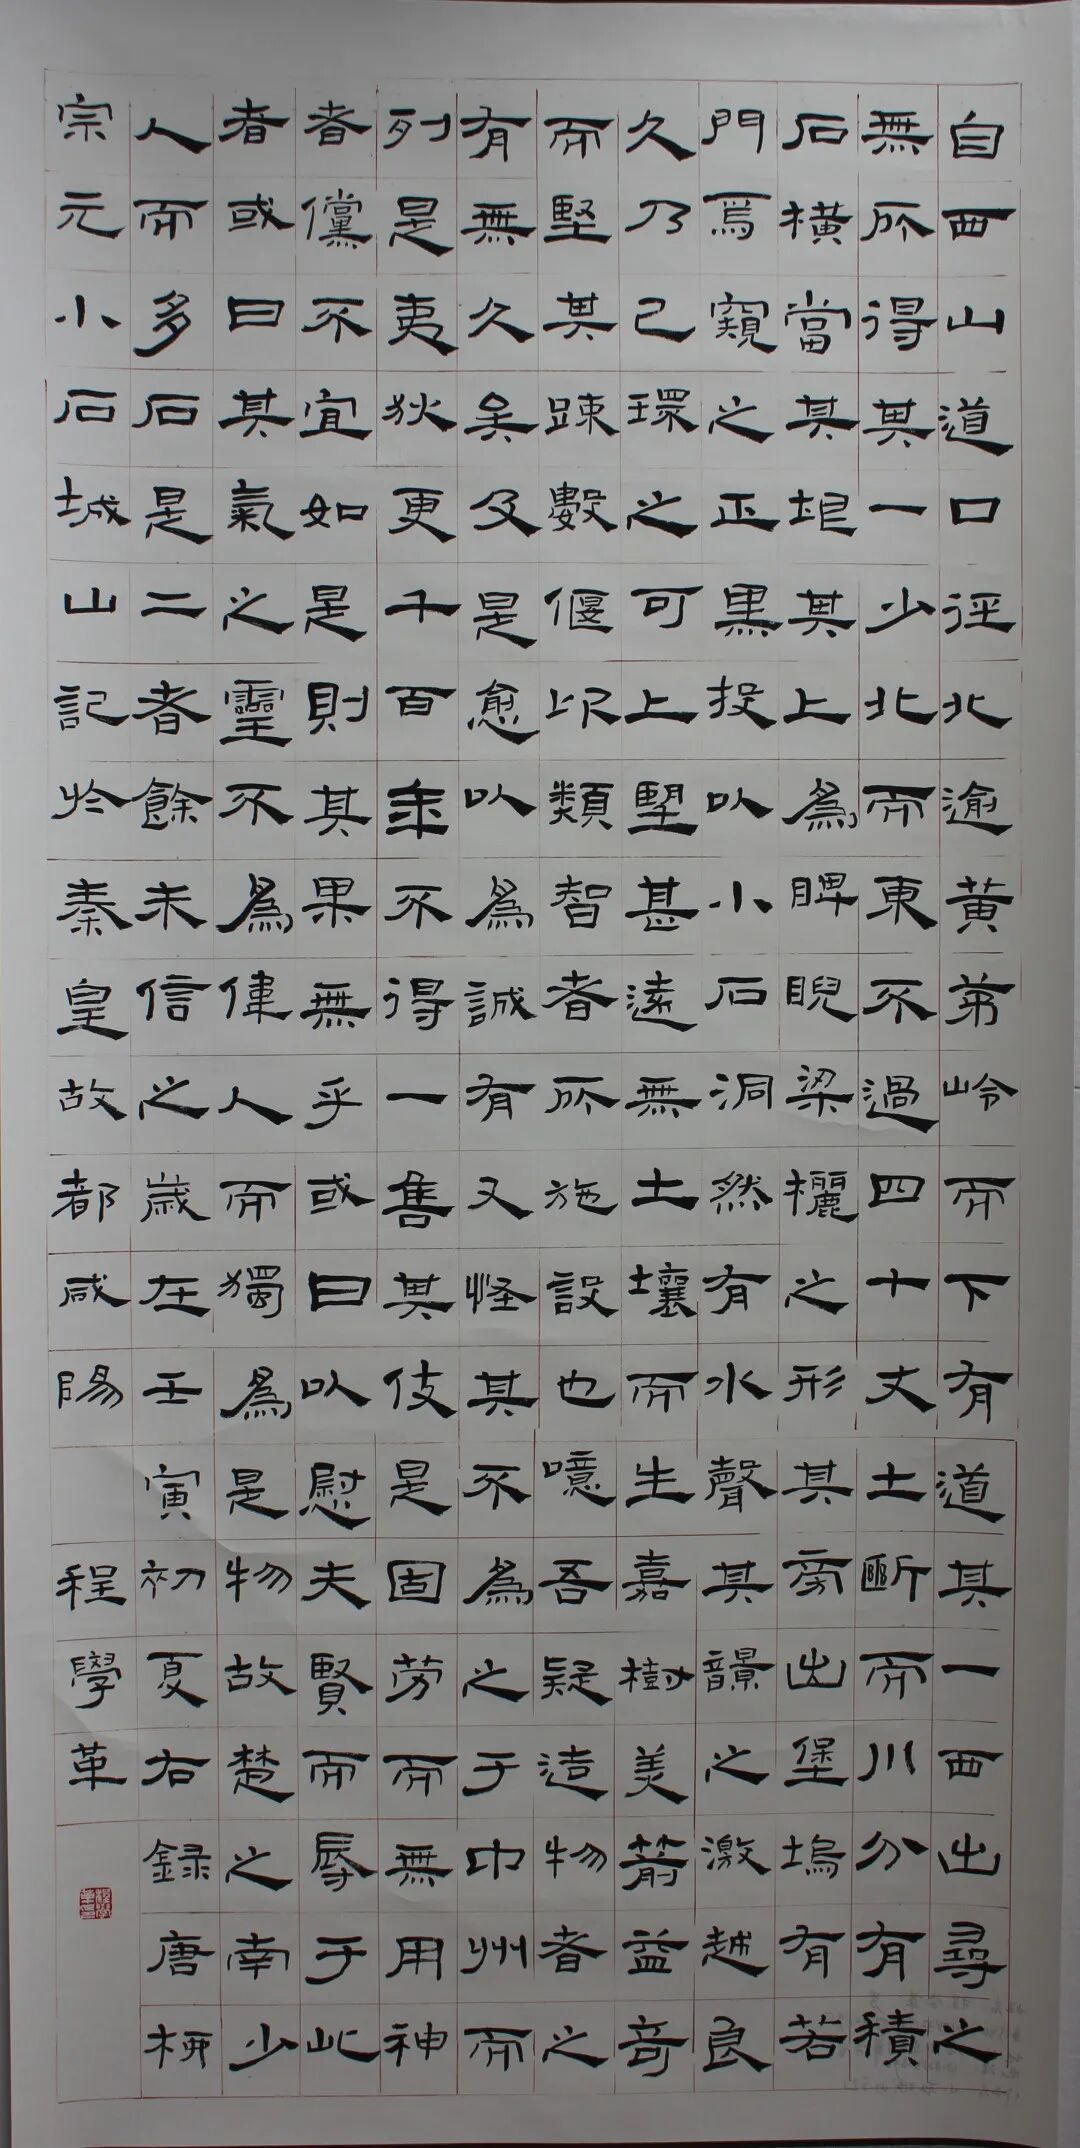 自西山道口徑北逾黃茅岭而下有道其一西出尋之
無所得其一少北而東不過四十丈土斷而川分有積
石橫當其垠其上為睥睨梁欐之形其旁出堡塢有若
門焉窺之正黑投以小石洞然有水聲其韻之激越良
久乃已環之可上望甚遠無土壤而生嘉樹美箭益奇
而堅其踈數偃仰類智者所施設也噫吾疑造物者之
有無久矣及是愈以為誠有又怪其不為之于中州而
列是夷狄更千百年不得一售其伎是固勞而無用神
者儻不宜如是則其果無乎或曰以慰夫賢而辱于此
者或曰其氣之靈不為偉人而獨為是物故楚之南少
人而多石是二者餘未信之歲在壬寅初夏右錄唐柳
宗元小石城山記於秦皇故都咸陽 程學革